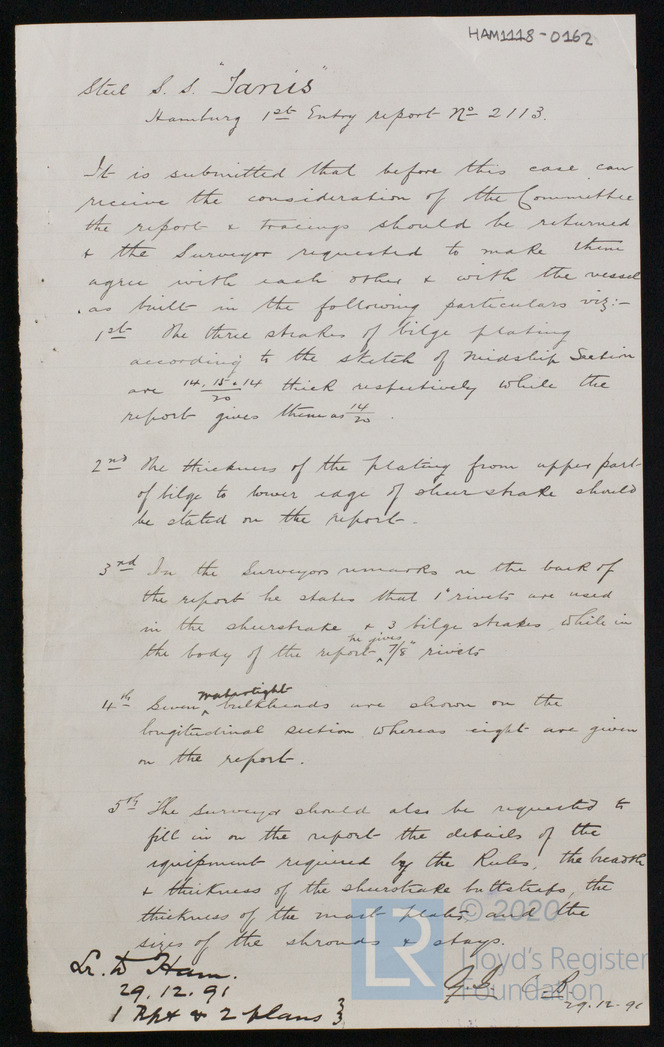 HAM1118-0162
Steel S. S. "Tanis"
Hamburg 1st Entry report No 2113.
It is submitted that before this case can
receive the consideration of the Committee
the report & tracings should be returned
& the Surveyor requested to make them
agree with each other & with the vessel
as built in the following particulars viz:-
1st The three strakes of bilge plating
according to the sketch of Midship Section
are 14.15.14/20 thick respectively while the
report gives them as 14/20.
2nd The thickness of the plating from upper part
of bilge to lower edge of sheerstrake should
be stated on the report.
3rd In the Surveyors remarks on the back of
the report he states that 1" rivets are used
in the sheerstrake & 3 bilge strakes while in
the body of the report he gives 7/8" rivets
4th Seven watertight bulkheads are shown on the
longitudinal section whereas eight are given
on the report.
5th The surveyor should also be requested to
fill in on the report the details of the
equipment required by the Rules, the breadth
& thickness of the sheerstrake buttstraps, the
thickness of the mast plates and the
sizes of the shrouds & stays.
Lr. to Ham.
29.12.91
1 Rpt & 2 plans
29.12.91
LR
© 2020
Lloyd's Register
Foundation